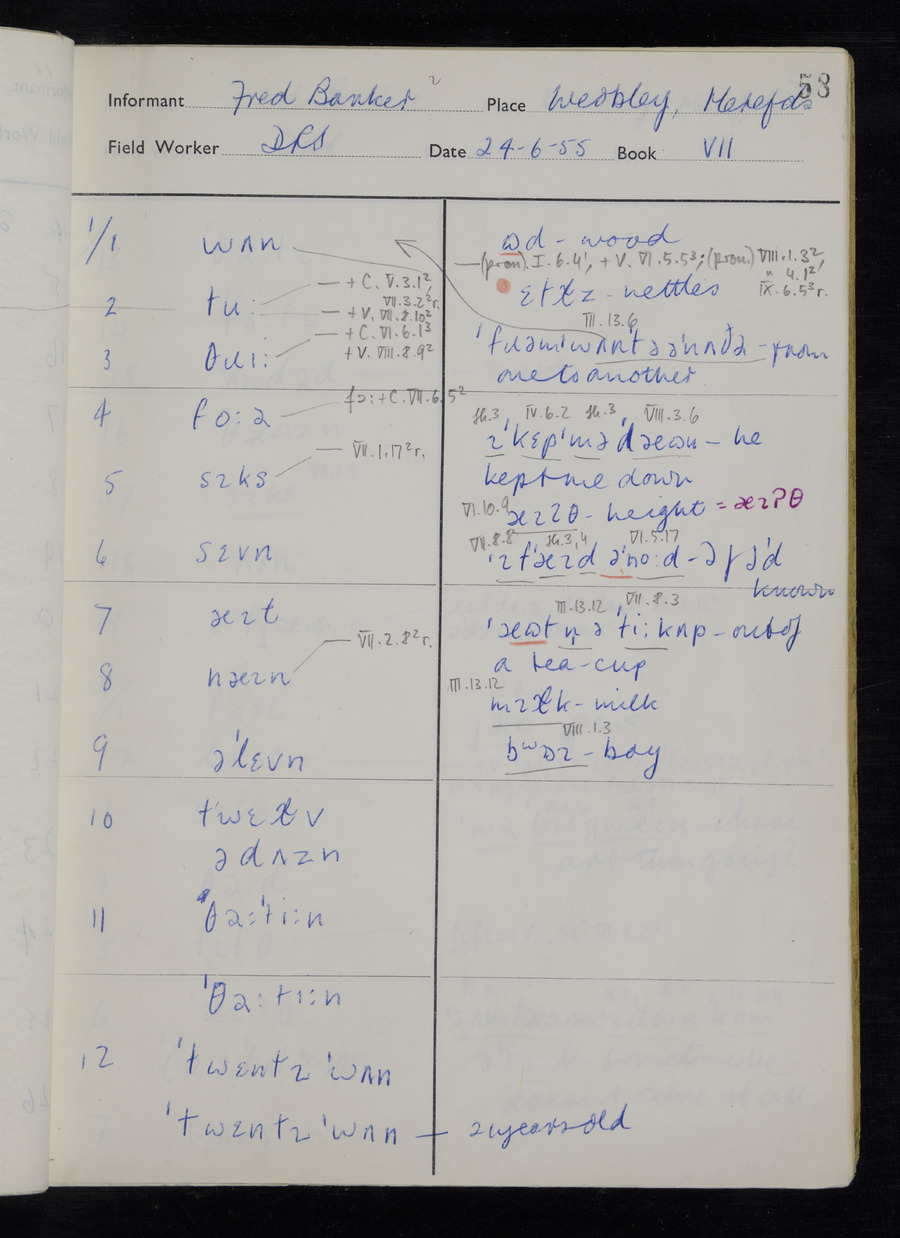 58
Informant Fred Banker 2 Place Weobley, Herefds
Field Worker DRS Date 24-6-55 Book VII
1/1 wʌn
ɷd - wood
(pron). I.6.4¹, + V. VI.5.5³; (pron) VIII.1.3², " 4.1²,
IX.6.5³r.
2 tu:
+ C. V.3.1², VII.3.2²r.
+ V. VII.8.10²
ɛtɫz - nettles
III.13.6
3 θɹi:
+ C. VI.6.1³
+ V. VIII.8.9²
ˈfɹəmˈwʌnt əəˈnʌðə - from
one to another
4 fo:ə
fɔ: + C. VII.6.5²
sh.3, IV.6.2 sh.3, VIII.3.6
ɪˈkɛpˈməˈdəɷn - he
kept me down
5 sɪks
VII.1.17²r.
VI.10.9
əɪʔθ - height = əɪʔθ
6 sɛvn
VII.8.8 sh.3,4 VI.5.17
ˈɪtˈəɪd əˈno:d - if I'd
known
7 əɪt
III.13.12, VII.8.3
ˈəɷt n̩ əˈti:kʌp - out of
a tea-cup
8 nəɪn
VII.2.8²r.
III.13.12
mɪɫk - milk
VIII.1.3
9 əˈlɛvn
bʷɒɪ - boy
10 twɛɫv
ədʌzn
11 θə:ˈti:n
ˈθə:ti:n
12 ˈtwɛntɪˈwʌn
ˈtwɛntɪˈwʌn — 21 years old